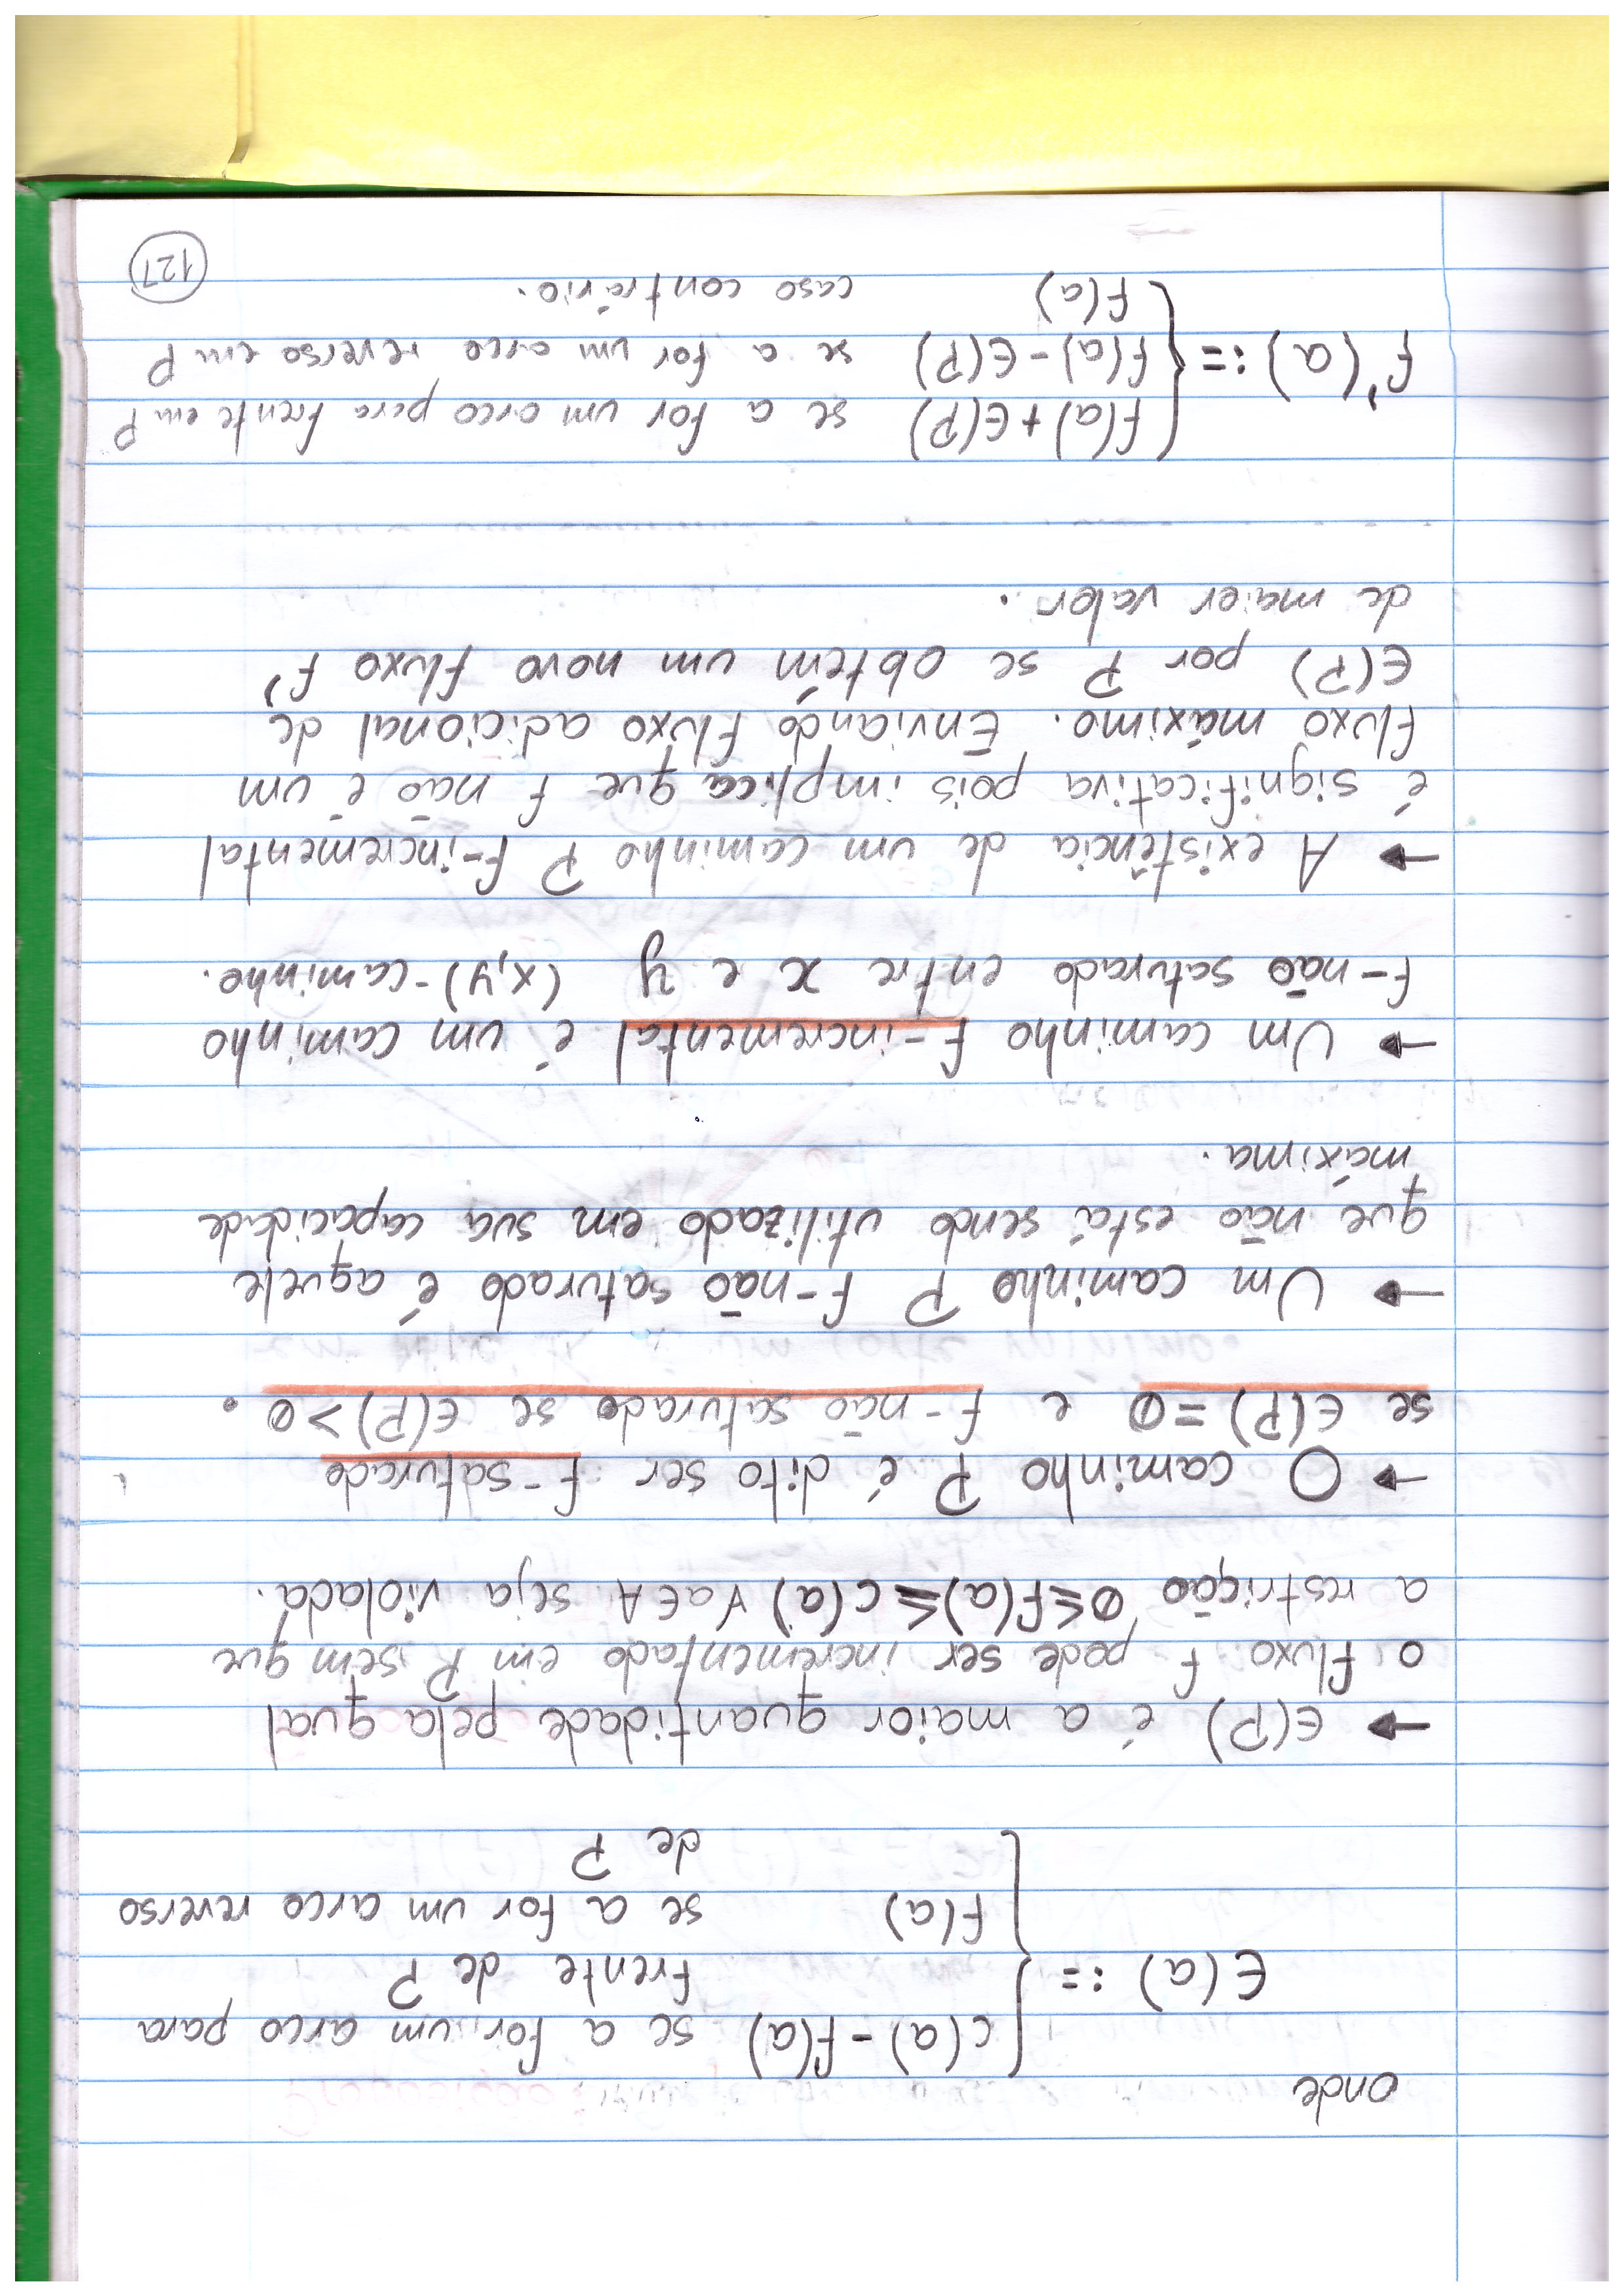 onde
∈(a) := { c(a) - f(a) se a for um arco para
frente de P
f(a) se a for um arco reverso
de P
→ ∈(P) é a maior quantidade pela qual
o fluxo f pode ser incrementado em P sem que
a restrição 0≤f(a)≤c(a) ∀a∈A seja violada.
→ O caminho P é dito ser f-saturado
se ∈(P)=0 e f-não saturado se ∈(P)>0.
→ Um caminho P f-não saturado é aquele
que não está sendo utilizado em sua capacidade
máxima.
→ Um caminho f-incremental é um caminho
f-não saturado entre x e y (x,y)-caminho.
→ A existência de um caminho P f-incremental
é significativa pois implica que f não é um
fluxo máximo. Enviando fluxo adicional de
∈(P) por P se obtém um novo fluxo f'
de maior valor.
f'(a) := { f(a)+∈(P) se a for um arco para frente em P
f(a)-∈(P) se a for um arco reverso em P
f(a) caso contrário.
127